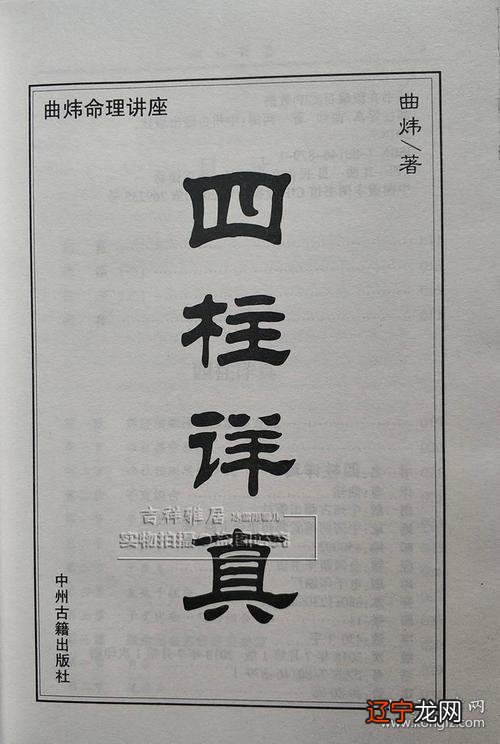 曲炜命理讲座
曲炜/著
四柱详真
中州古籍出版社
吉祥雅居
实物拍摄
辽宁龙网